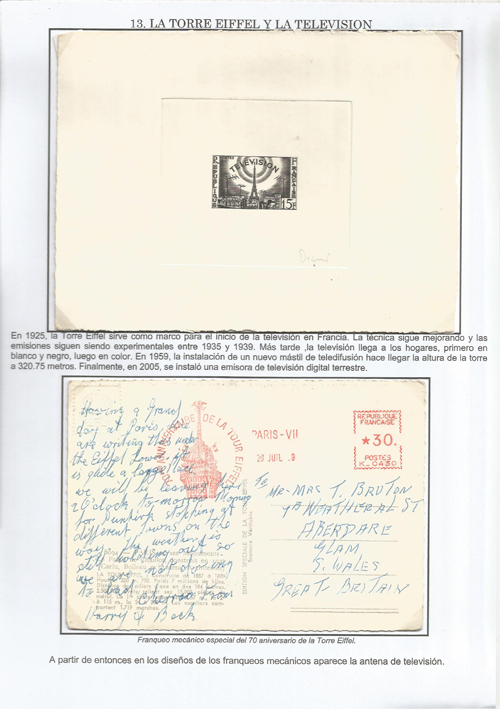 13. LA TORRE EIFFEL Y LA TELEVISION
POSTES
TELEVISION
REPUBLIQUE
FRANÇAISE
15F
En 1925, la Torre Eiffel sirve como marco para el inicio de la televisión en Francia. La técnica sigue mejorando y las
emisiones siguen siendo experimentales entre 1935 y 1939. Más tarde ,la televisión llega a los hogares, primero en
blanco y negro, luego en color. En 1959, la instalación de un nuevo mástil de teledifusión hace llegar la altura de la torre
a 320.75 metros. Finalmente, en 2005, se instaló una emisora de televisión digital terrestre.
Having a Grand
day at Paris, we
are writing this near
the Eiffel tower, it
is quite a large
we will be leaving
2 o'clock tomorrow
for Dunkirk stopping at
different towns on the
way. the weather is
still holding out so
we are not doing
to bad. Cheerio from
Harry &
70e ANNIVERSAIRE DE LA TOUR EIFFEL
PARIS-VII
JUIL 9
REPUBLIQUE
FRANÇAISE
★30.
POSTES
K_0430
EDITION SPECIALE DE LA TOUR EIFFEL
To
MR-MRS T. BRUTON
WEATHERAL ST
ABERDARE
GLAM
S. WALES
GREAT BRITAIN
Franqueo mecánico especial del 70 aniversario de la Torre Eiffel.
A partir de entonces en los diseños de los franqueos mecánicos aparece la antena de televisión.